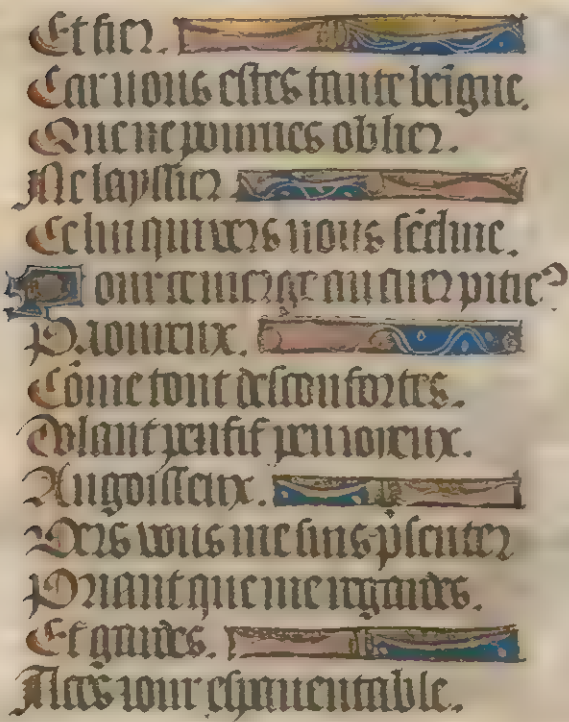 Et fier.
Car vous estes tante bēigne.
Que ne pouuies oblier.
Ne layssier
Celui qui vers vous sēcline.
Pour ce vierge au cuer pitieꝰ
Paoureux.
Cōme tout desconfortes.
Dolant pensif peu ioieux.
Angoisseux.
Vers vous me suis p̄senter
Priant que me regardes.
Et gardes.
A ces iour espauentable.